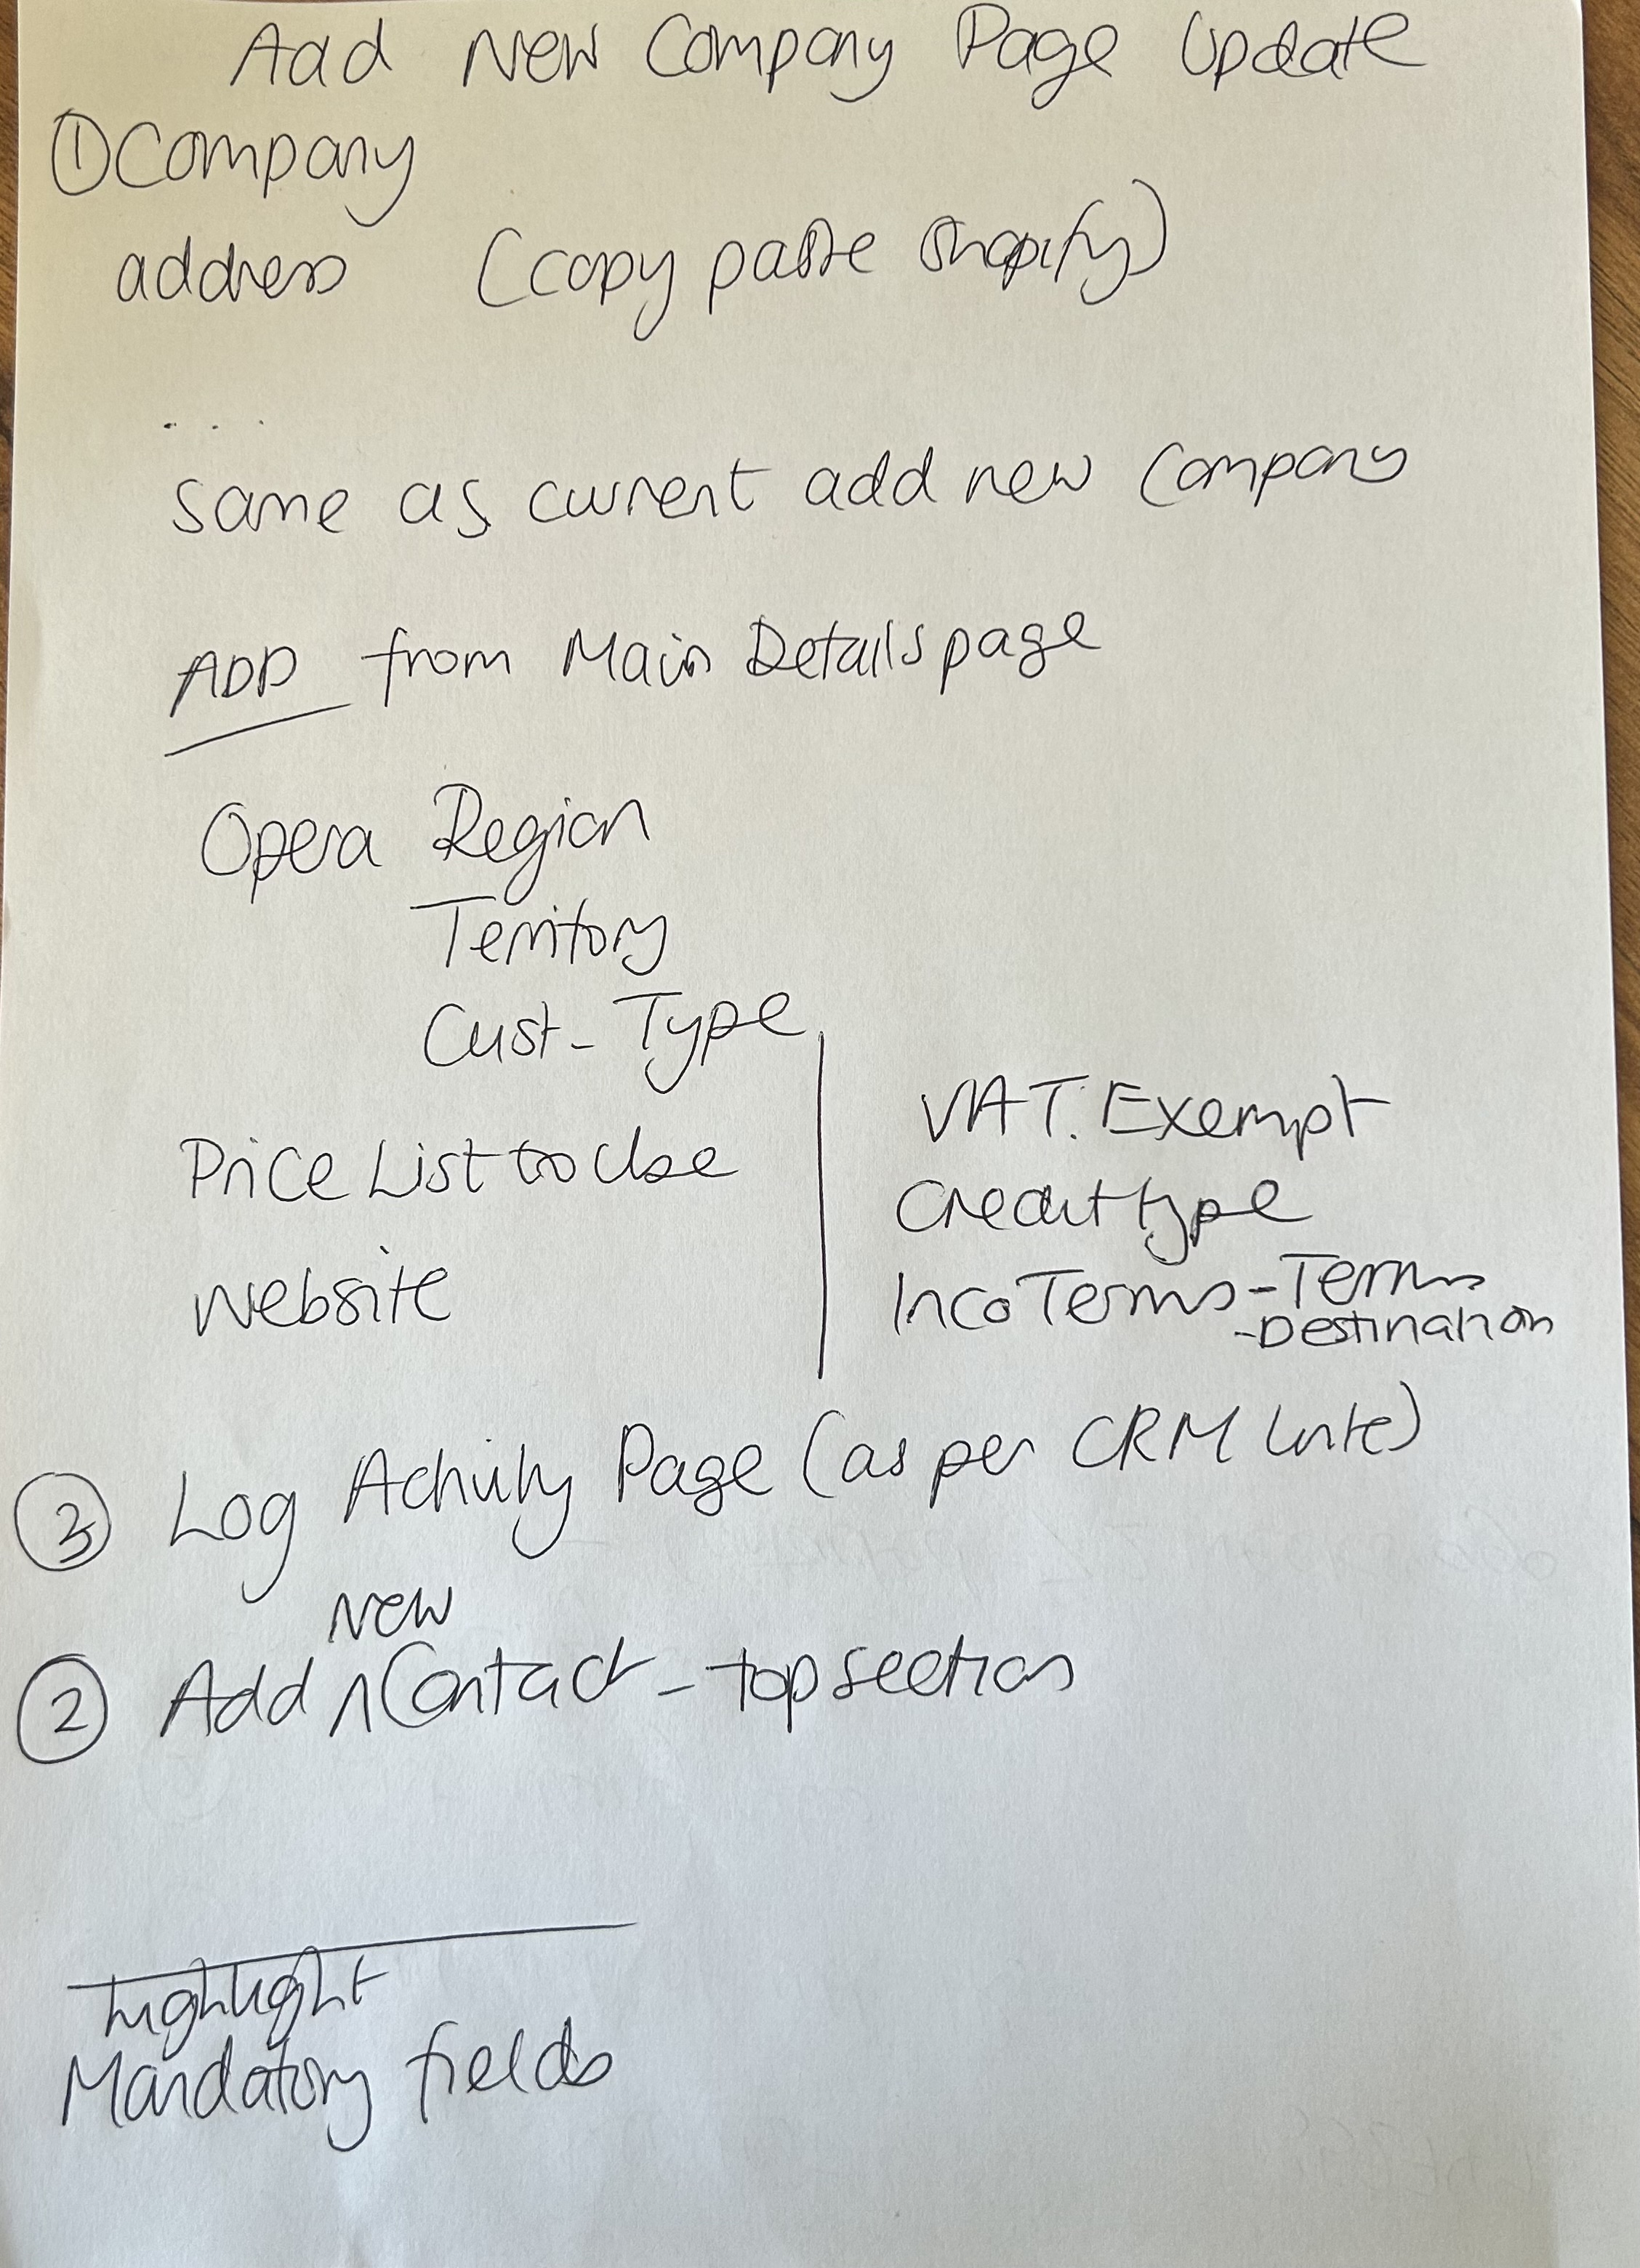 Add New Company Page Update
① Company
address (copy paste shopify)
. . .
same as current add new company
ADD from Main Details page
Opera Region
Territory
Cust-Type
Price List to Use
Website
VAT. Exempt
Credit type
Inco Terms - Terms
- Destination
③ Log Activity Page (as per CRM Lite)
New
② Add ^ Contact - top section
highlight
Mandatory fields